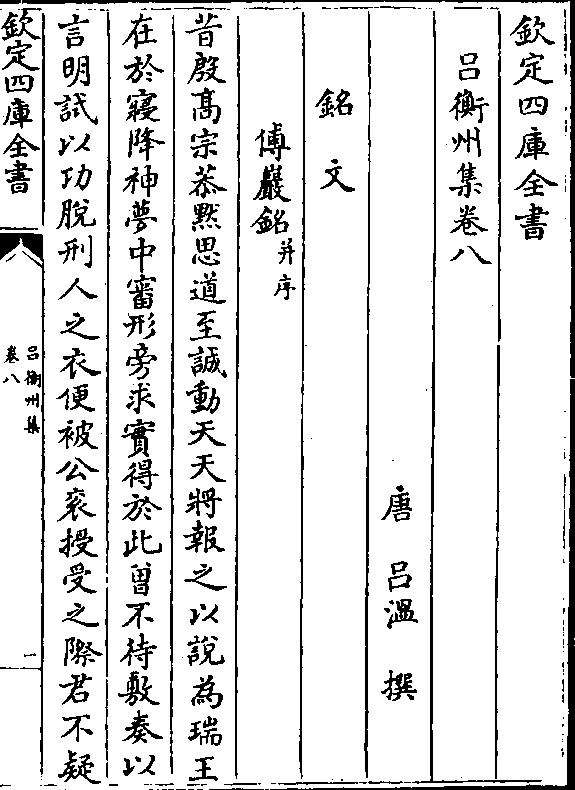 欽定四庫全書
呂衡州集卷八
唐 呂溫 撰
銘文
傅巖銘并序
昔殷髙宗恭黙思道至誠動天天將報之以說為瑞王
在於寢降神夢中審形旁求實得於此曽不待敷奏以
言明試以功脫刑人之衣便被公衮授受之際君不疑
欽定四庫全書
呂衡州集
卷八
一